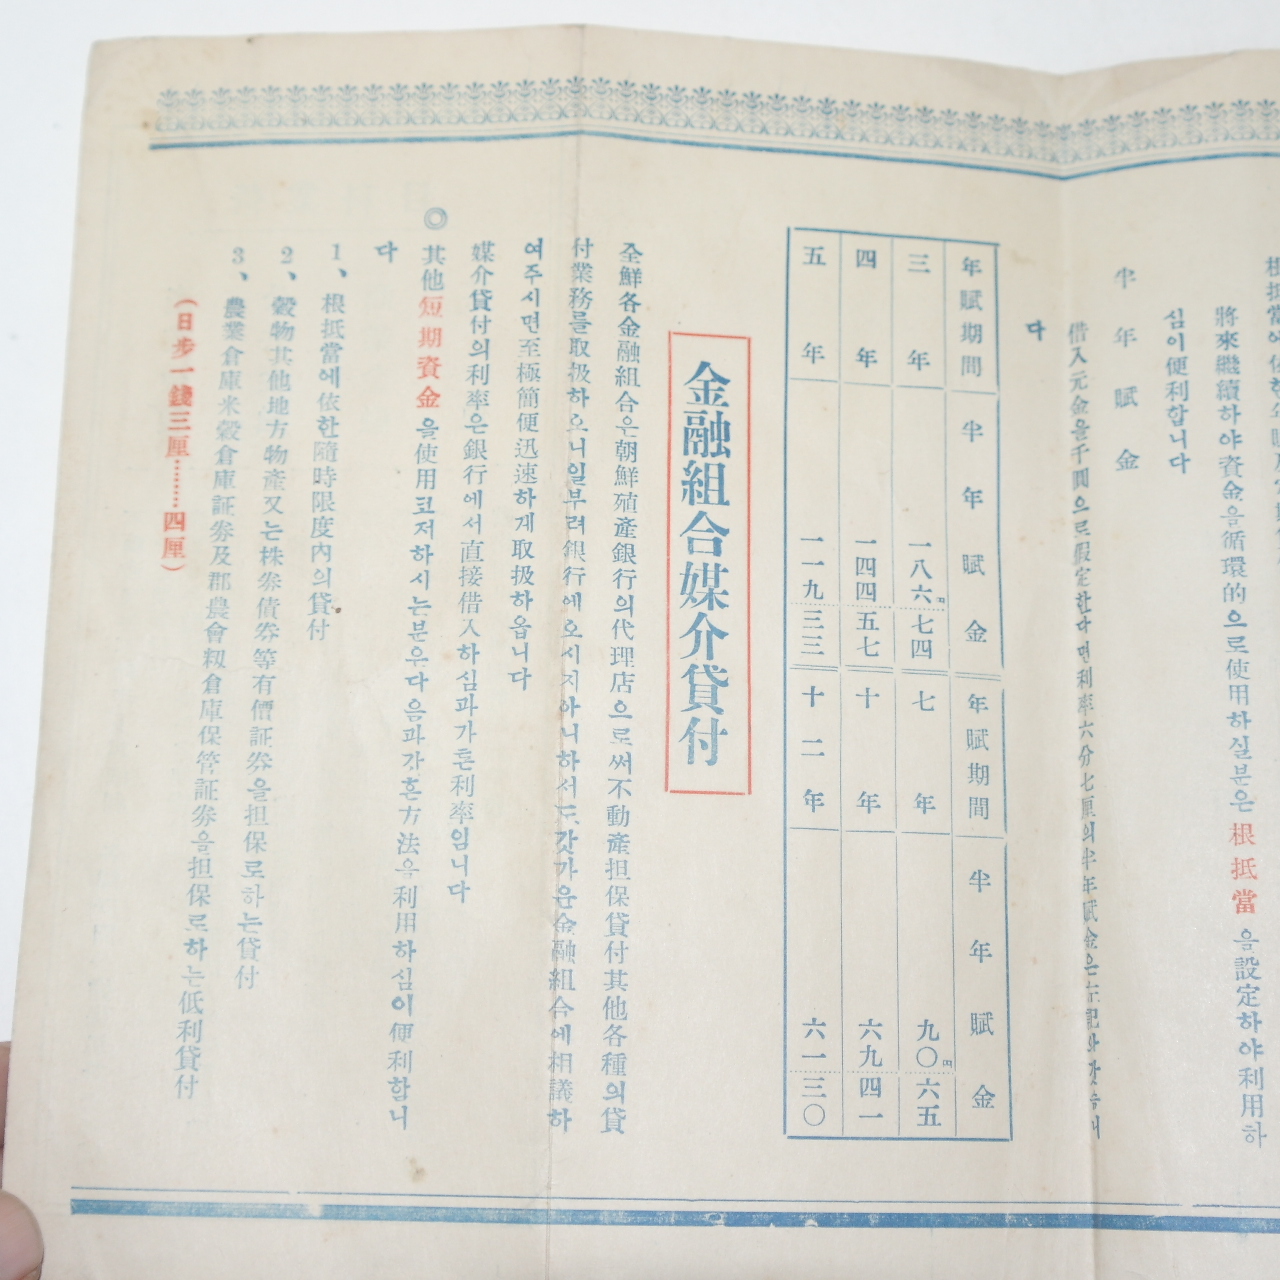 將來繼續하야資金을循環的으로使用하실분은根抵當을設定하야利用하
심이便利합니다
半年賦金
借入元金을千圓으로假定한다면利率六分七厘의半年賦金은左記와갓습니
다
年賦期間 半年賦金 年賦期間 半年賦金
三年 一八六円七四 七年 九〇円六五
四年 一四四五七 十年 六九四一
五年 一一九三三 十二年 六一三〇
金融組合媒介貸付
全鮮各金融組合은朝鮮殖產銀行의代理店으로써不動產担保貸付其他各種의貸
付業務를取扱하오니일부러銀行에오시지아니하서도갓가운金融組合에相議하
여주시면至極簡便迅速하게取扱하옵니다
媒介貸付의利率은銀行에서直接借入하심과가튼利率임니다
◎其他短期資金을使用코저하시는분우다음과갓흔方法을利用하심이便利합니
다
1、根抵當에依한隨時限度內의貸付
2、穀物其他地方物產又는株券債券等有價証券을担保로하는貸付
3、農業倉庫米穀倉庫証券及郡農會籾倉庫保管証券을担保로하는低利貸付
(日步一錢三厘……四厘)